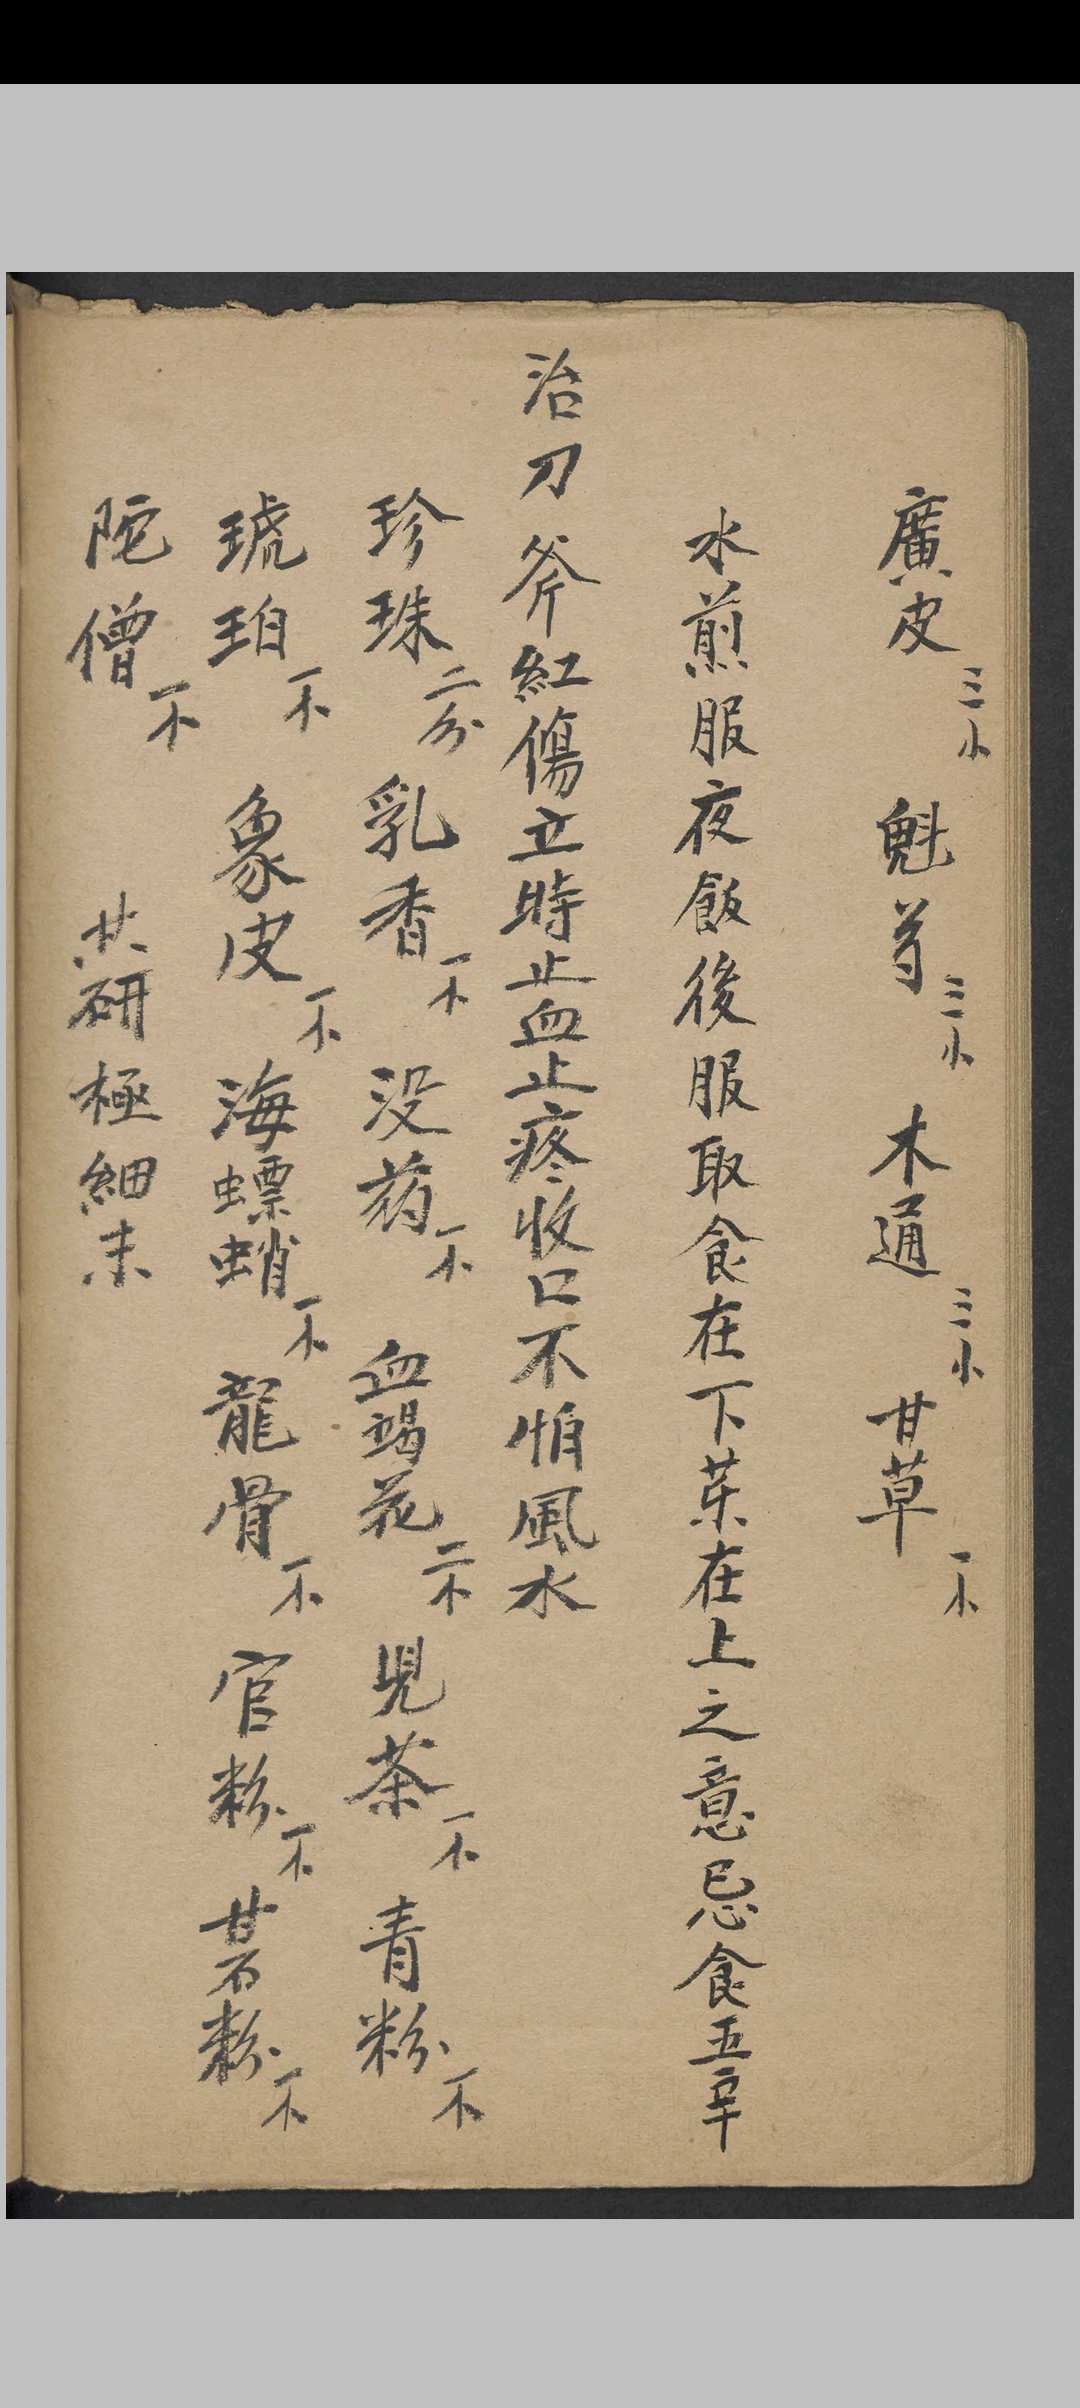 廣皮三小 魁芎三小 木通三小 甘草一小
水煎服夜飯後服取食在下葯在上之意忌食五辛
治刀斧紅傷立時止血止疼收口不怕風水
珍珠二分 乳香一小 没葯一小 血竭花二小 兒茶一小 青粉一小
琥珀一小 象皮一小 海螵蛸一小 龍骨一小 官粉一小 甘石粉一小
陀僧一小 共研極細末